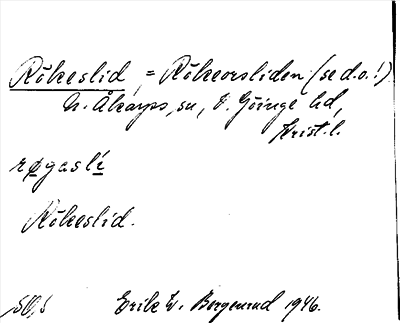 Rökeslid, = Rökeorsliden (se d.o.!)
N. Åkarps sn, V. Göinge hd,
Krist. l.
røgaslí
Rökeslid.
Erik W. Bergenrud 1946.